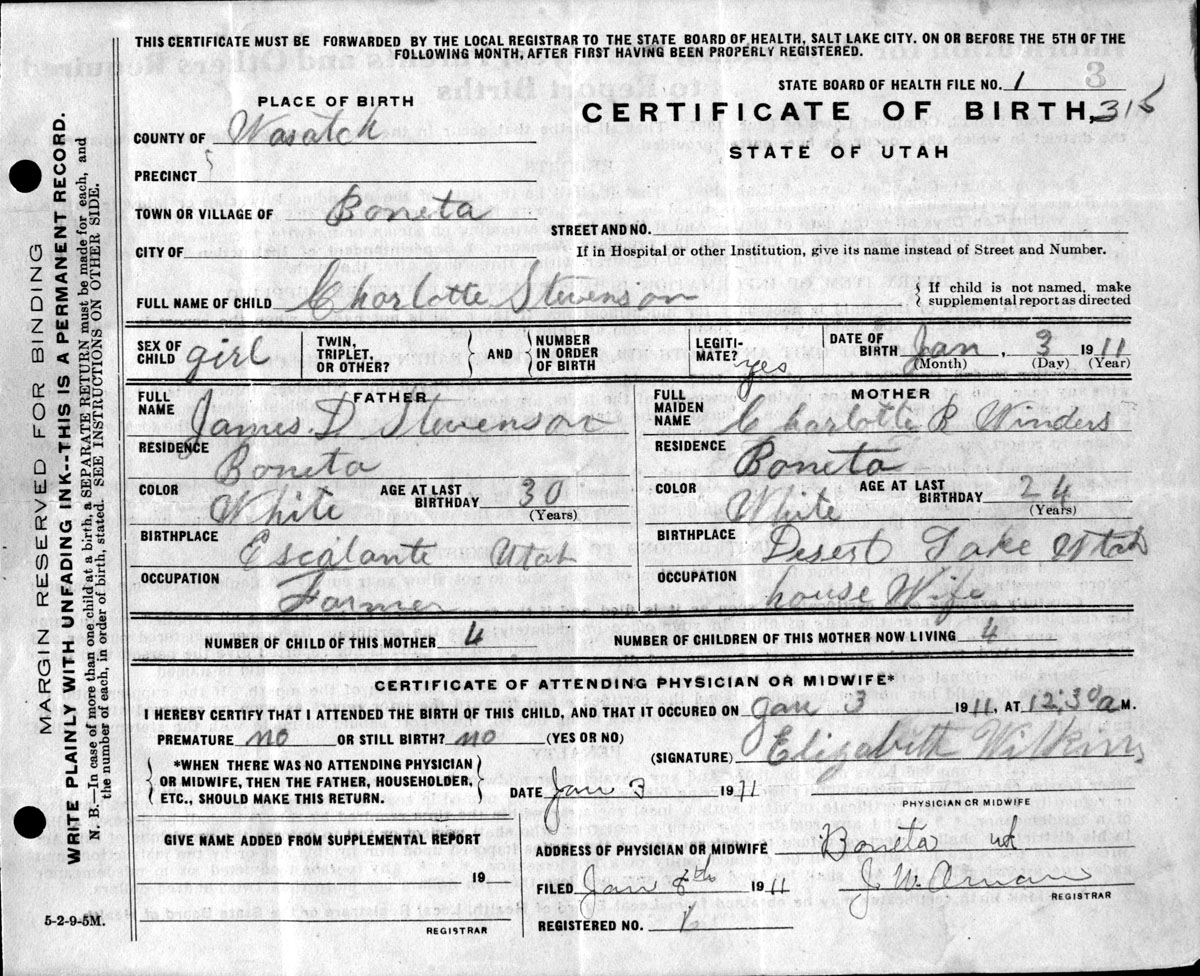 THIS CERTIFICATE MUST BE FORWARDED BY THE LOCAL REGISTRAR TO THE STATE BOARD OF HEALTH, SALT LAKE CITY. ON OR BEFORE THE 5TH OF THE
FOLLOWING MONTH, AFTER FIRST HAVING BEEN PROPERLY REGISTERED.
STATE BOARD OF HEALTH FILE NO. 1
PLACE OF BIRTH
CERTIFICATE OF BIRTH, 315
STATE OF UTAH
COUNTY OF Wasatch
PRECINCT
TOWN OR VILLAGE OF Boneta
STREET AND NO.
CITY OF
If in Hospital or other Institution, give its name instead of Street and Number.
FULL NAME OF CHILD Charlotte Stevenson
If child is not named, make
supplemental report as directed
SEX OF CHILD girl
TWIN, TRIPLET, OR OTHER?
AND
NUMBER IN ORDER OF BIRTH
LEGITI-MATE? yes
DATE OF BIRTH Jan, 3 1911
(Month) (Day) (Year)
FATHER
FULL NAME James D Stevenson
RESIDENCE Boneta
COLOR White
AGE AT LAST BIRTHDAY 30 (Years)
BIRTHPLACE Escalante Utah
OCCUPATION Farmer
MOTHER
FULL MAIDEN NAME Charlotte B Winders
RESIDENCE Boneta
COLOR White
AGE AT LAST BIRTHDAY 24 (Years)
BIRTHPLACE Desert Lake Utah
OCCUPATION house Wife
NUMBER OF CHILD OF THIS MOTHER 4
NUMBER OF CHILDREN OF THIS MOTHER NOW LIVING 4
CERTIFICATE OF ATTENDING PHYSICIAN OR MIDWIFE*
I HEREBY CERTIFY THAT I ATTENDED THE BIRTH OF THIS CHILD, AND THAT IT OCCURED ON Jan 3 1911, AT 12:30 a M.
PREMATURE no OR STILL BIRTH? no (YES OR NO)
(SIGNATURE) Elizabeth Wilkins
*WHEN THERE WAS NO ATTENDING PHYSICIAN
OR MIDWIFE, THEN THE FATHER, HOUSEHOLDER,
ETC., SHOULD MAKE THIS RETURN.
DATE Jan 3 1911
PHYSICIAN OR MIDWIFE
GIVE NAME ADDED FROM SUPPLEMENTAL REPORT
19
REGISTRAR
ADDRESS OF PHYSICIAN OF MIDWIFE Boneta ut
FILED Jan 8th 1911
REGISTRAR
REGISTERED NO.
5-2-9-5M.
MARGIN RESERVED FOR BINDING
WRITE PLAINLY WITH UNFADING INK--THIS IS A PERMANENT RECORD.
N. B.—In case of more than one child at a birth, a SEPARATE RETURN must be made for each, and
the number of each, in order of birth, stated. SEE INSTRUCTIONS ON OTHER SIDE.